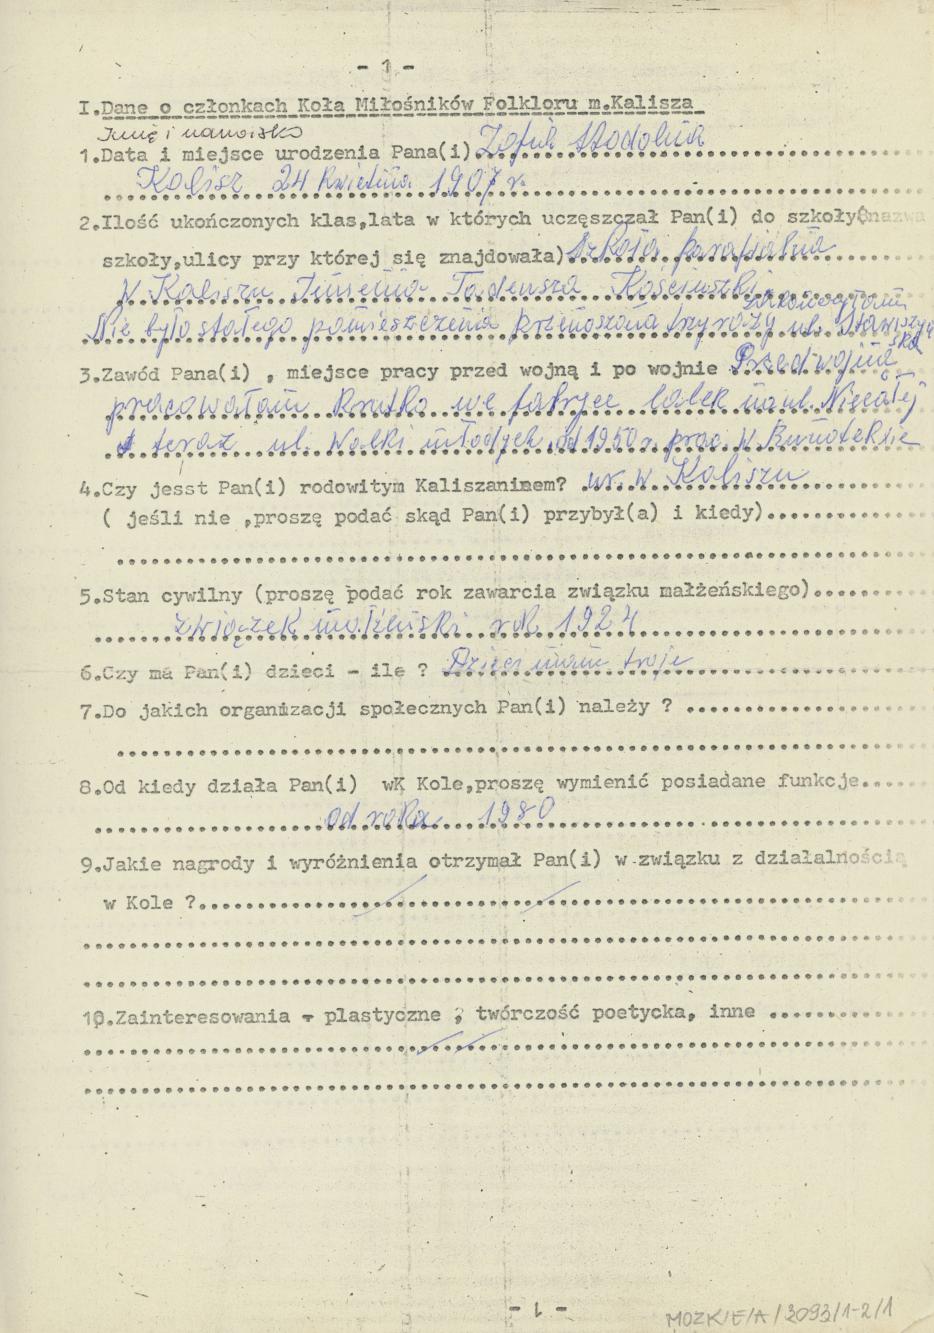 - 1 -
I.Dane o członkach Koła Miłośników Folkloru m.Kalisza
Imię i nazwisko
1.Data i miejsce urodzenia Pana(i) Zofia Stodolna
Kalisz 24 kwietnia 1907 r.
2.Ilość ukończonych klas,lata w których uczęszczał Pan(i) do szkoły(nazwa
szkoły,ulicy przy której się znajdowała) Szkoła parafialna
w Kaliszu Imienia Tadeusza Kościuszki
Nie było stałego pomieszczenia przenoszona trzy razy ul. Stawiszyńska
3.Zawód Pana(i) , miejsce pracy przed wojną i po wojnie Przed wojną
pracowałam krótko we fabryce lalek na ul. Niecałej
teraz ul. Walki młodych od 1950 r. prac. w
4.Czy jesst Pan(i) rodowitym Kaliszaninem? ur. w Kaliszu
( jeśli nie ,proszę podać skąd Pan(i) przybył(a) i kiedy)
5.Stan cywilny (proszę podać rok zawarcia związku małżeńskiego)
związek małżeński rok 1924
6.Czy ma Pan(i) dzieci - ile ? Dzieci mam troje
7.Do jakich organizacji społecznych Pan(i) należy ?
8.Od kiedy działa Pan(i) wK Kole,proszę wymienić posiadane funkcje
od roku 1980
9.Jakie nagrody i wyróżnienia otrzymał Pan(i) w związku z działalnością
w Kole ?
10.Zainteresowania - plastyczne , twórczość poetycka, inne
- 1 -
MOZK/E/A/3093/1-2/1